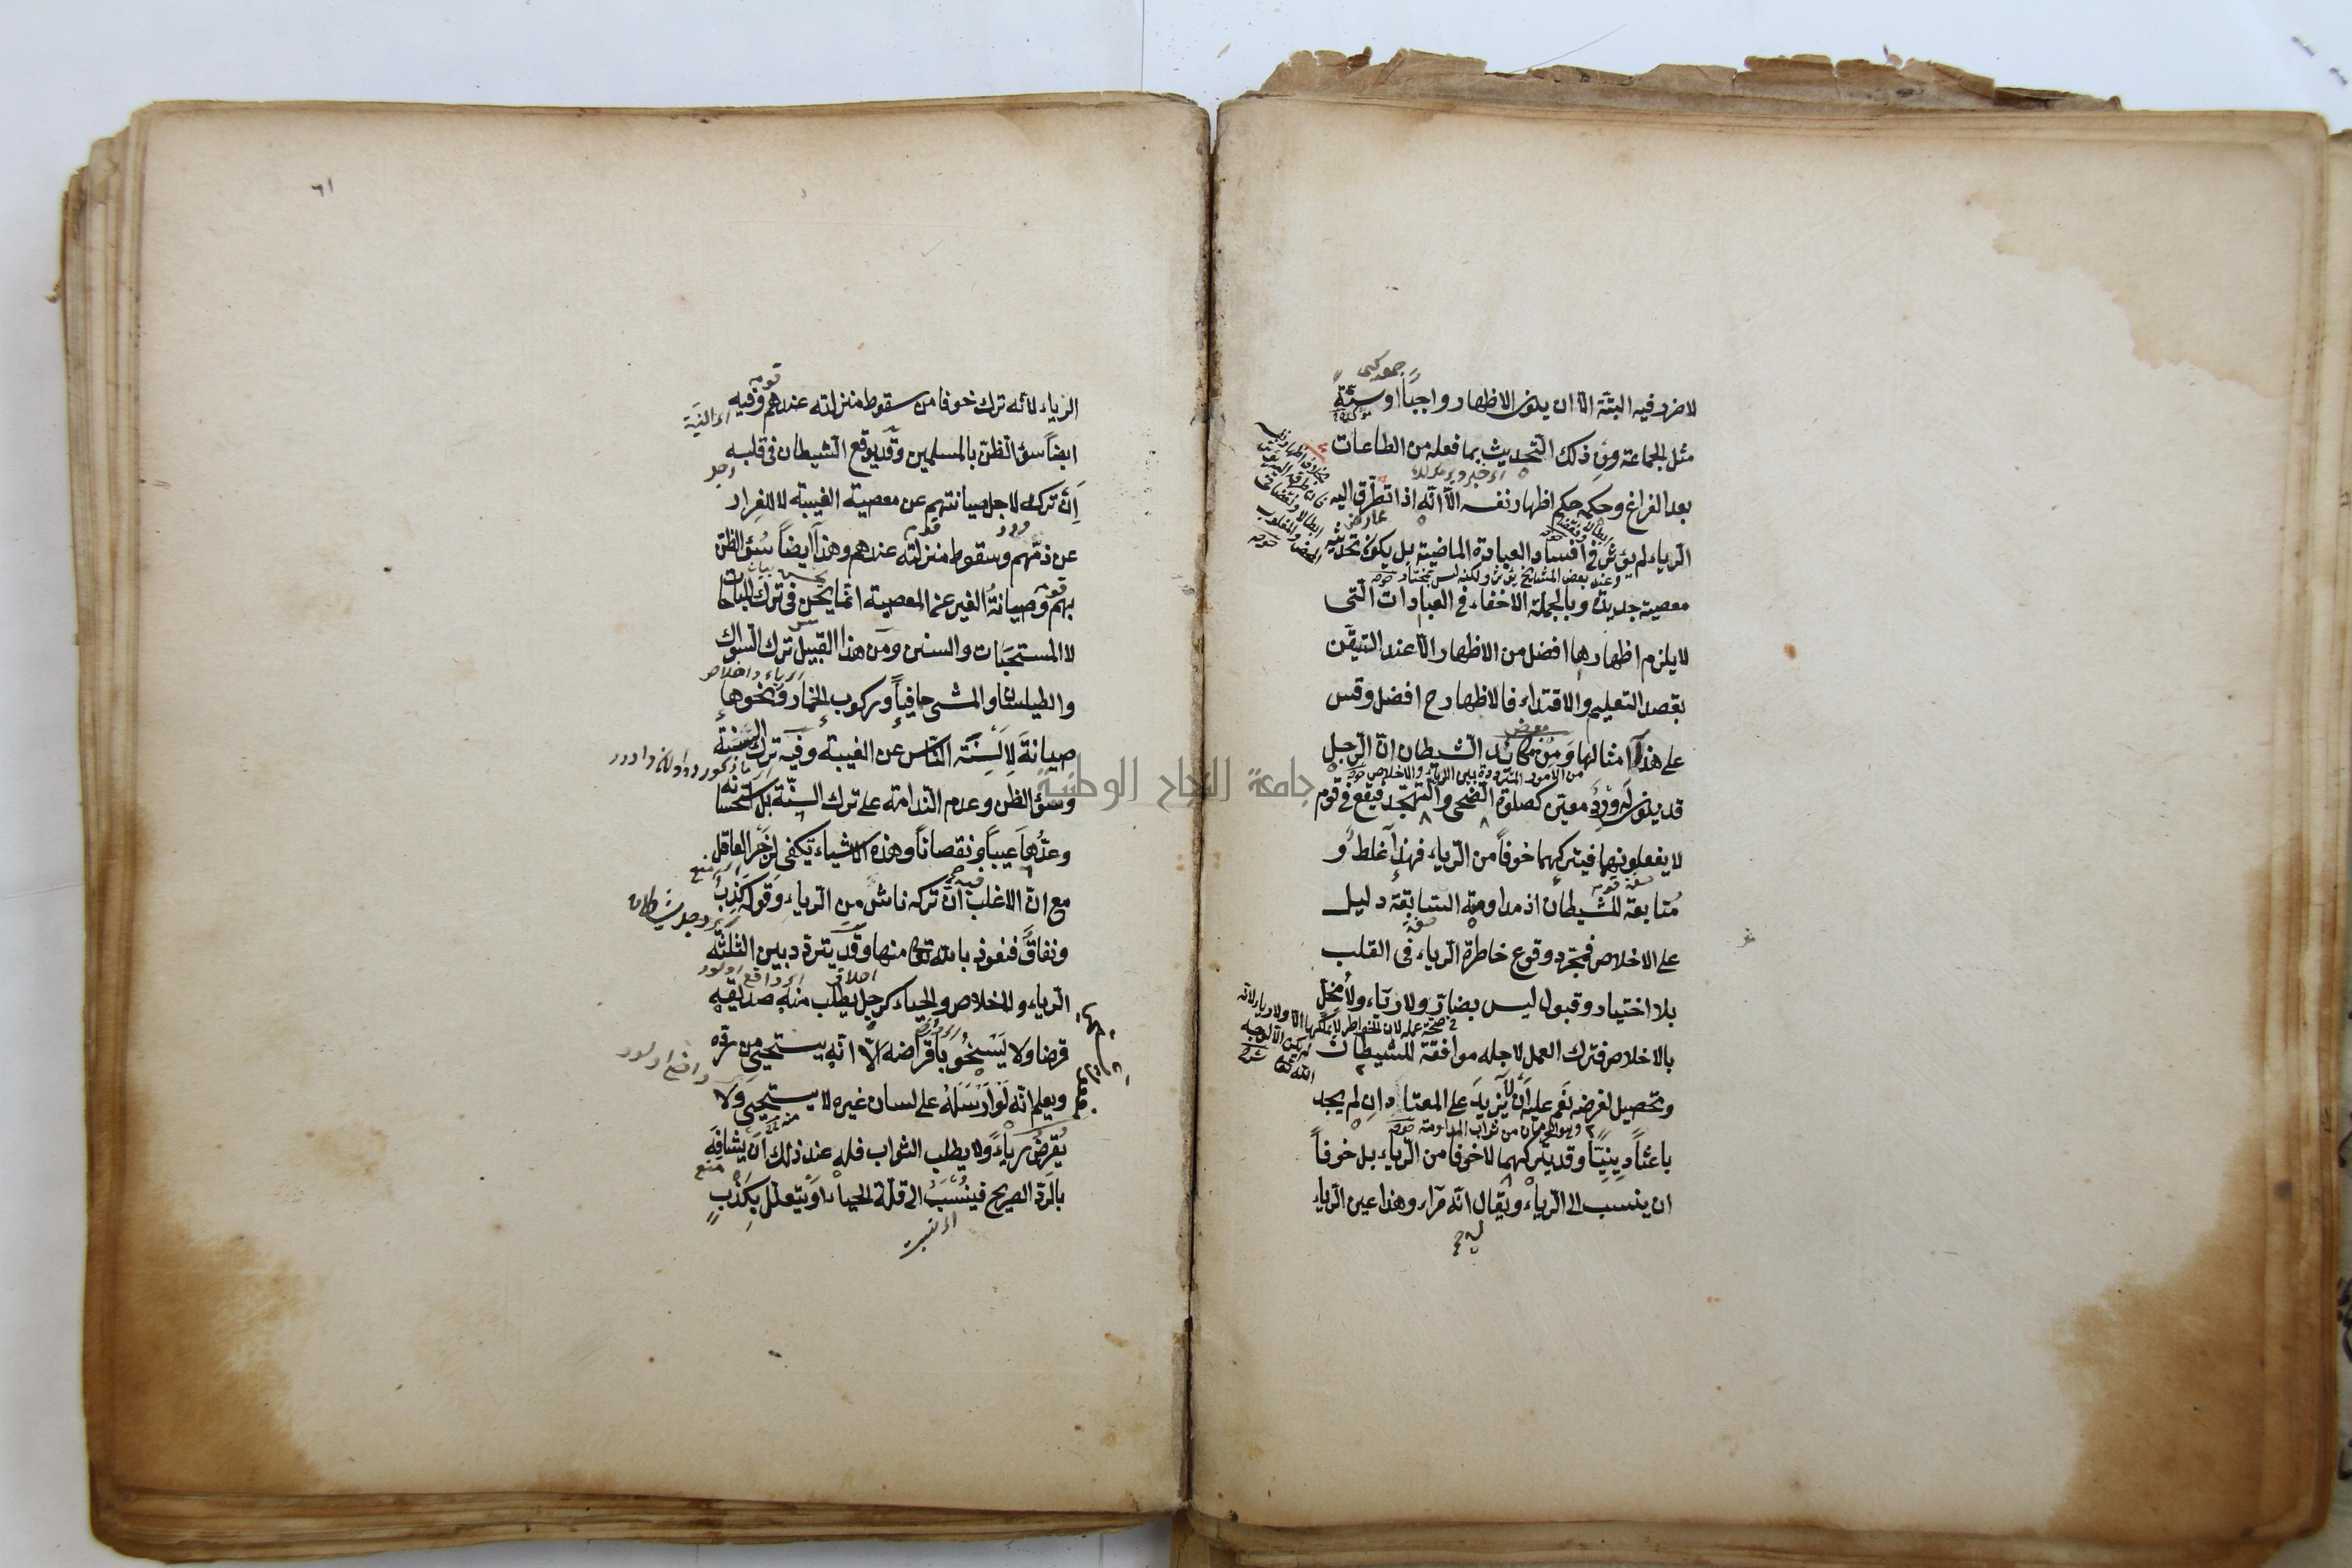 لا ضرر فيه البتة الا ان يكون الاظهار واجباً او سنّة
مثل الجماعة ومن ذلك التحديث بما فعله من الطاعات
بعد الفراغ وحكمه حكم اظهار نفسه الا انّه اذا تطرّق اليه
الرّياء لم يؤثر في افساد العبادة الماضية بل يكون تحديثه
وعند بعض المشايخ يؤثر ولكنه ليس بمختار
معصية جديدة وبالجملة الاخفاء في العبادات الّتى
لا يلزم اظهارها افضل من الاظهار الّا عند التيقّن
بقصد التعليم والاقتداء فالاظهار ح افضل وقس
على هذا امثالها ومن مكائد الشيطان انّ الرّجل
من الامور المترددة بين الرياء والاخلاص
قد يكون له وِرْدٌ معيّن كصلوة الضّحى والتّهجّد فيقع في قوم
لا يفعلونها فيتركهما خوفاً من الرّياء فهذا غلطٌ و
مُتابعة للشيطان اذ مداومته السّابقة دليل
على الاخلاص فمجرّد وقوع خاطرة الرّياء فى القلب
بلا اختيار وقبول ليس بضارّ ولا رياء ولا مُخلّ
بالاخلاص فترك العمل لاجله موافقة للشيطان
وتحصيل لغرضه نعم عليه ان لا يزيد على المعتاد ان لم يجد
باعثاً دِينيّاً وقد يتركهما لا خوفاً من الرّياء بل خوفاً
ان ينسب الى الرّياء ويقال انّه مرآء وهذا عين الرّياء
٦١
الرّياء لانّه ترك خوفا من سقوط منزلته عندهم وفيه
ايضاً سوء الظنّ بالمسلمين وقد يوقع الشيطان فى قلبه
اَنّ تركه لاجل صيانتهم عن معصية الغيبة لا للفرار
عن ذمّهم وسقوط منزلته عندهم وهذا ايضاً سُوء الظنّ
بهم وصيانةُ الغير عن المعصية انما يحسن فى ترك المباحات
لا المستحبّات والسنن ومن هذا القبيل ترك السّواك
والطيلسان والمشى حافياً وركوب الحمار ونحوها
صيانةَ لِاَلْسِنَة النّاس عن الغيبة وفيه ترك السّنّة
وسوء الظن وعدم النّدامة على ترك السنّة بل استحسانه
وعدّها عيباً ونقصاناً وهذه الاشياء تكفى لزَجْر العاقل
مع انّ الاغلب انّ تركه ناشٍ من الرّياء وقوله كَذِبٌ
ونفاقٌ فنعوذ بالله تعالى منها وقد يتردّد بين الثلثة
الرّياء والاخلاص والحياء كرجل يطلب منه صديقه
قرضا ولا يَسْخُو باقراضه الّا انّه يستحيى من ردّه
ويعلم انّه لَوْ اَرْسَلَهُ على لسان غيره لا يستحيى وَلا
يُقرِضُ رياءً ولا يطلب الثواب فله عند ذلك ان يشافِهَ
بالرّد الصريح فينسَبُ الى قلّة الحياء او يتعلّل بِكَذِبٍ
جامعة النجاح الوطنية